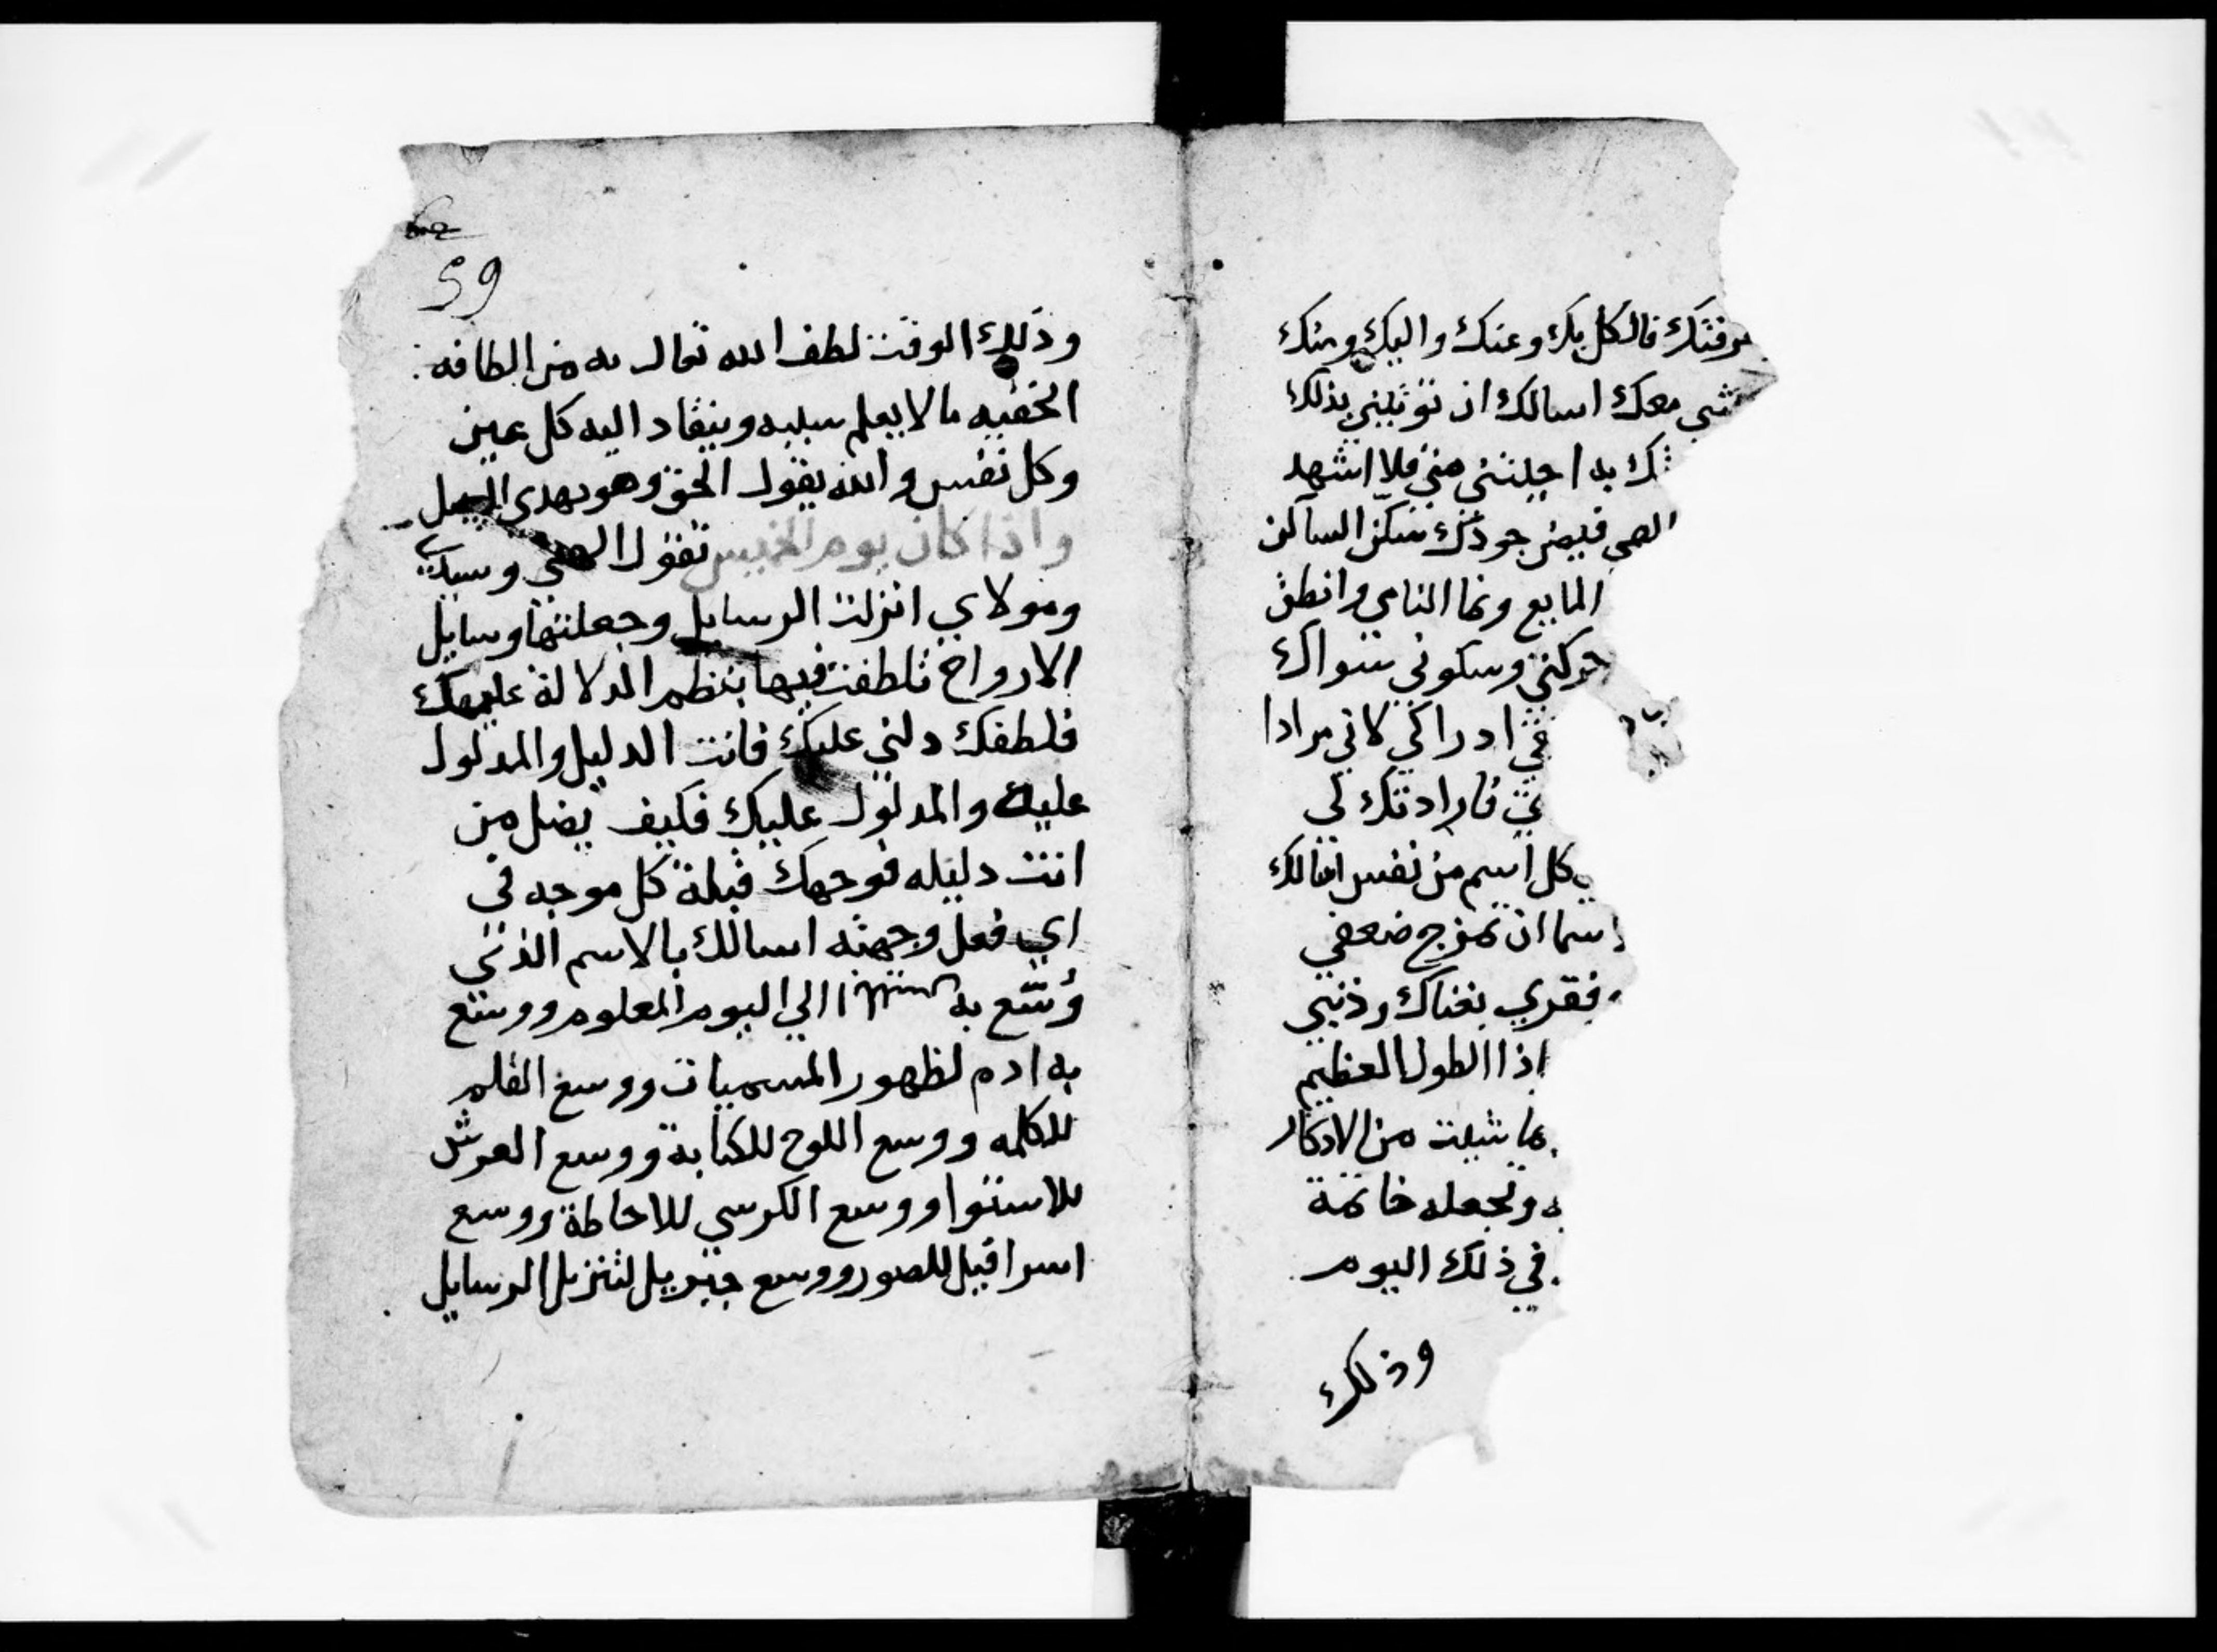 عرفتك فالكل بك وعنك واليك ومنك
معك اسالك ان تؤتيني بذلك
به اجلتني مني فلا اشهد
الهي فيض جودك سكن الساكن
المايع ونما النامي وانطق
حركتي وسكوني سواك
في ادراكي لاني مرادا
فارادتك لي
كل اسم من نفس اسالك
اسما ان تمزج ضعفي
فقري بغناك وذنبي
اذا الطول العظيم
ما شيت من الاذكار
وتجعله خاتمة
في ذلك اليوم
وذلك
59
وذلك الوقت لطف الله تعالى به من الطافه
الخفيه ما لا يعلم سببه وينقاد اليه كل عين
وكل نفس والله يقول الحق وهو يهدي السبيل
واذا كان يوم الخميس تقول الهي وسيدي
ومولاي انزلت الرسايل وجعلتها وسايل
الارواح تلطفت فيها بنظم الدلالة عليك
فلطفك دلني عليك فانت الدليل والمدلول
عليك والمدلول عليك فكيف يضل من
انت دليله فوجهك قبلة كل موجه في
اي فعل وجهته اسالك بالاسم الذي
وسع به الى اليوم المعلوم ووسع
به ادم لظهور المسميات ووسع القلم
للكلمه ووسع اللوح للكتابة ووسع العرش
للاستوا ووسع الكرسي للاحاطة ووسع
اسرافيل للصور ووسع جبريل لتنزيل الرسايل